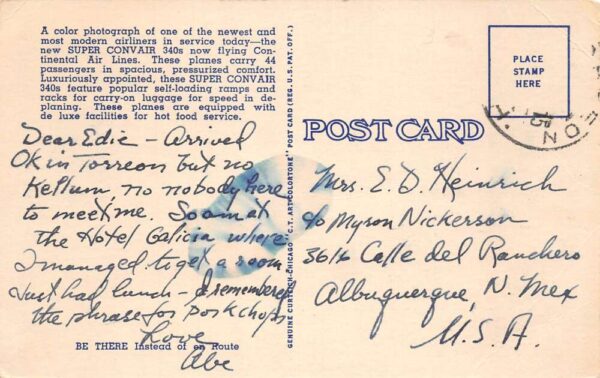 A color photograph of one of the newest and
most modern airliners in service today—the
new SUPER CONVAIR 340s now flying Con-
tinental Air Lines. These planes carry 44
passengers in spacious, pressurized comfort.
Luxuriously appointed, these SUPER CONVAIR
340s feature popular self-loading ramps and
racks for carry-on luggage for speed in de-
planing. These planes are equipped with
de luxe facilities for hot food service.
Dear Edie - Arrived
OK in Torreon but no
Kellum, no nobody here
to meet me. So am at
the Hotel Galicia where
I managed to get a room
Just had lunch - I remembered
the phrase for pork chops
Love
Abe
BE THERE Instead of en Route
GENUINE CURTEICH-CHICAGO "C.T. ART-COLORTONE" POST CARD (REG. U.S. PAT. OFF.)
POST CARD
PLACE
STAMP
HERE
Mrs. E. D. Heinrich
c/o Myron Nickerson
3616 Calle del Ranchero
Albuquerque, N. Mex
U.S.A.